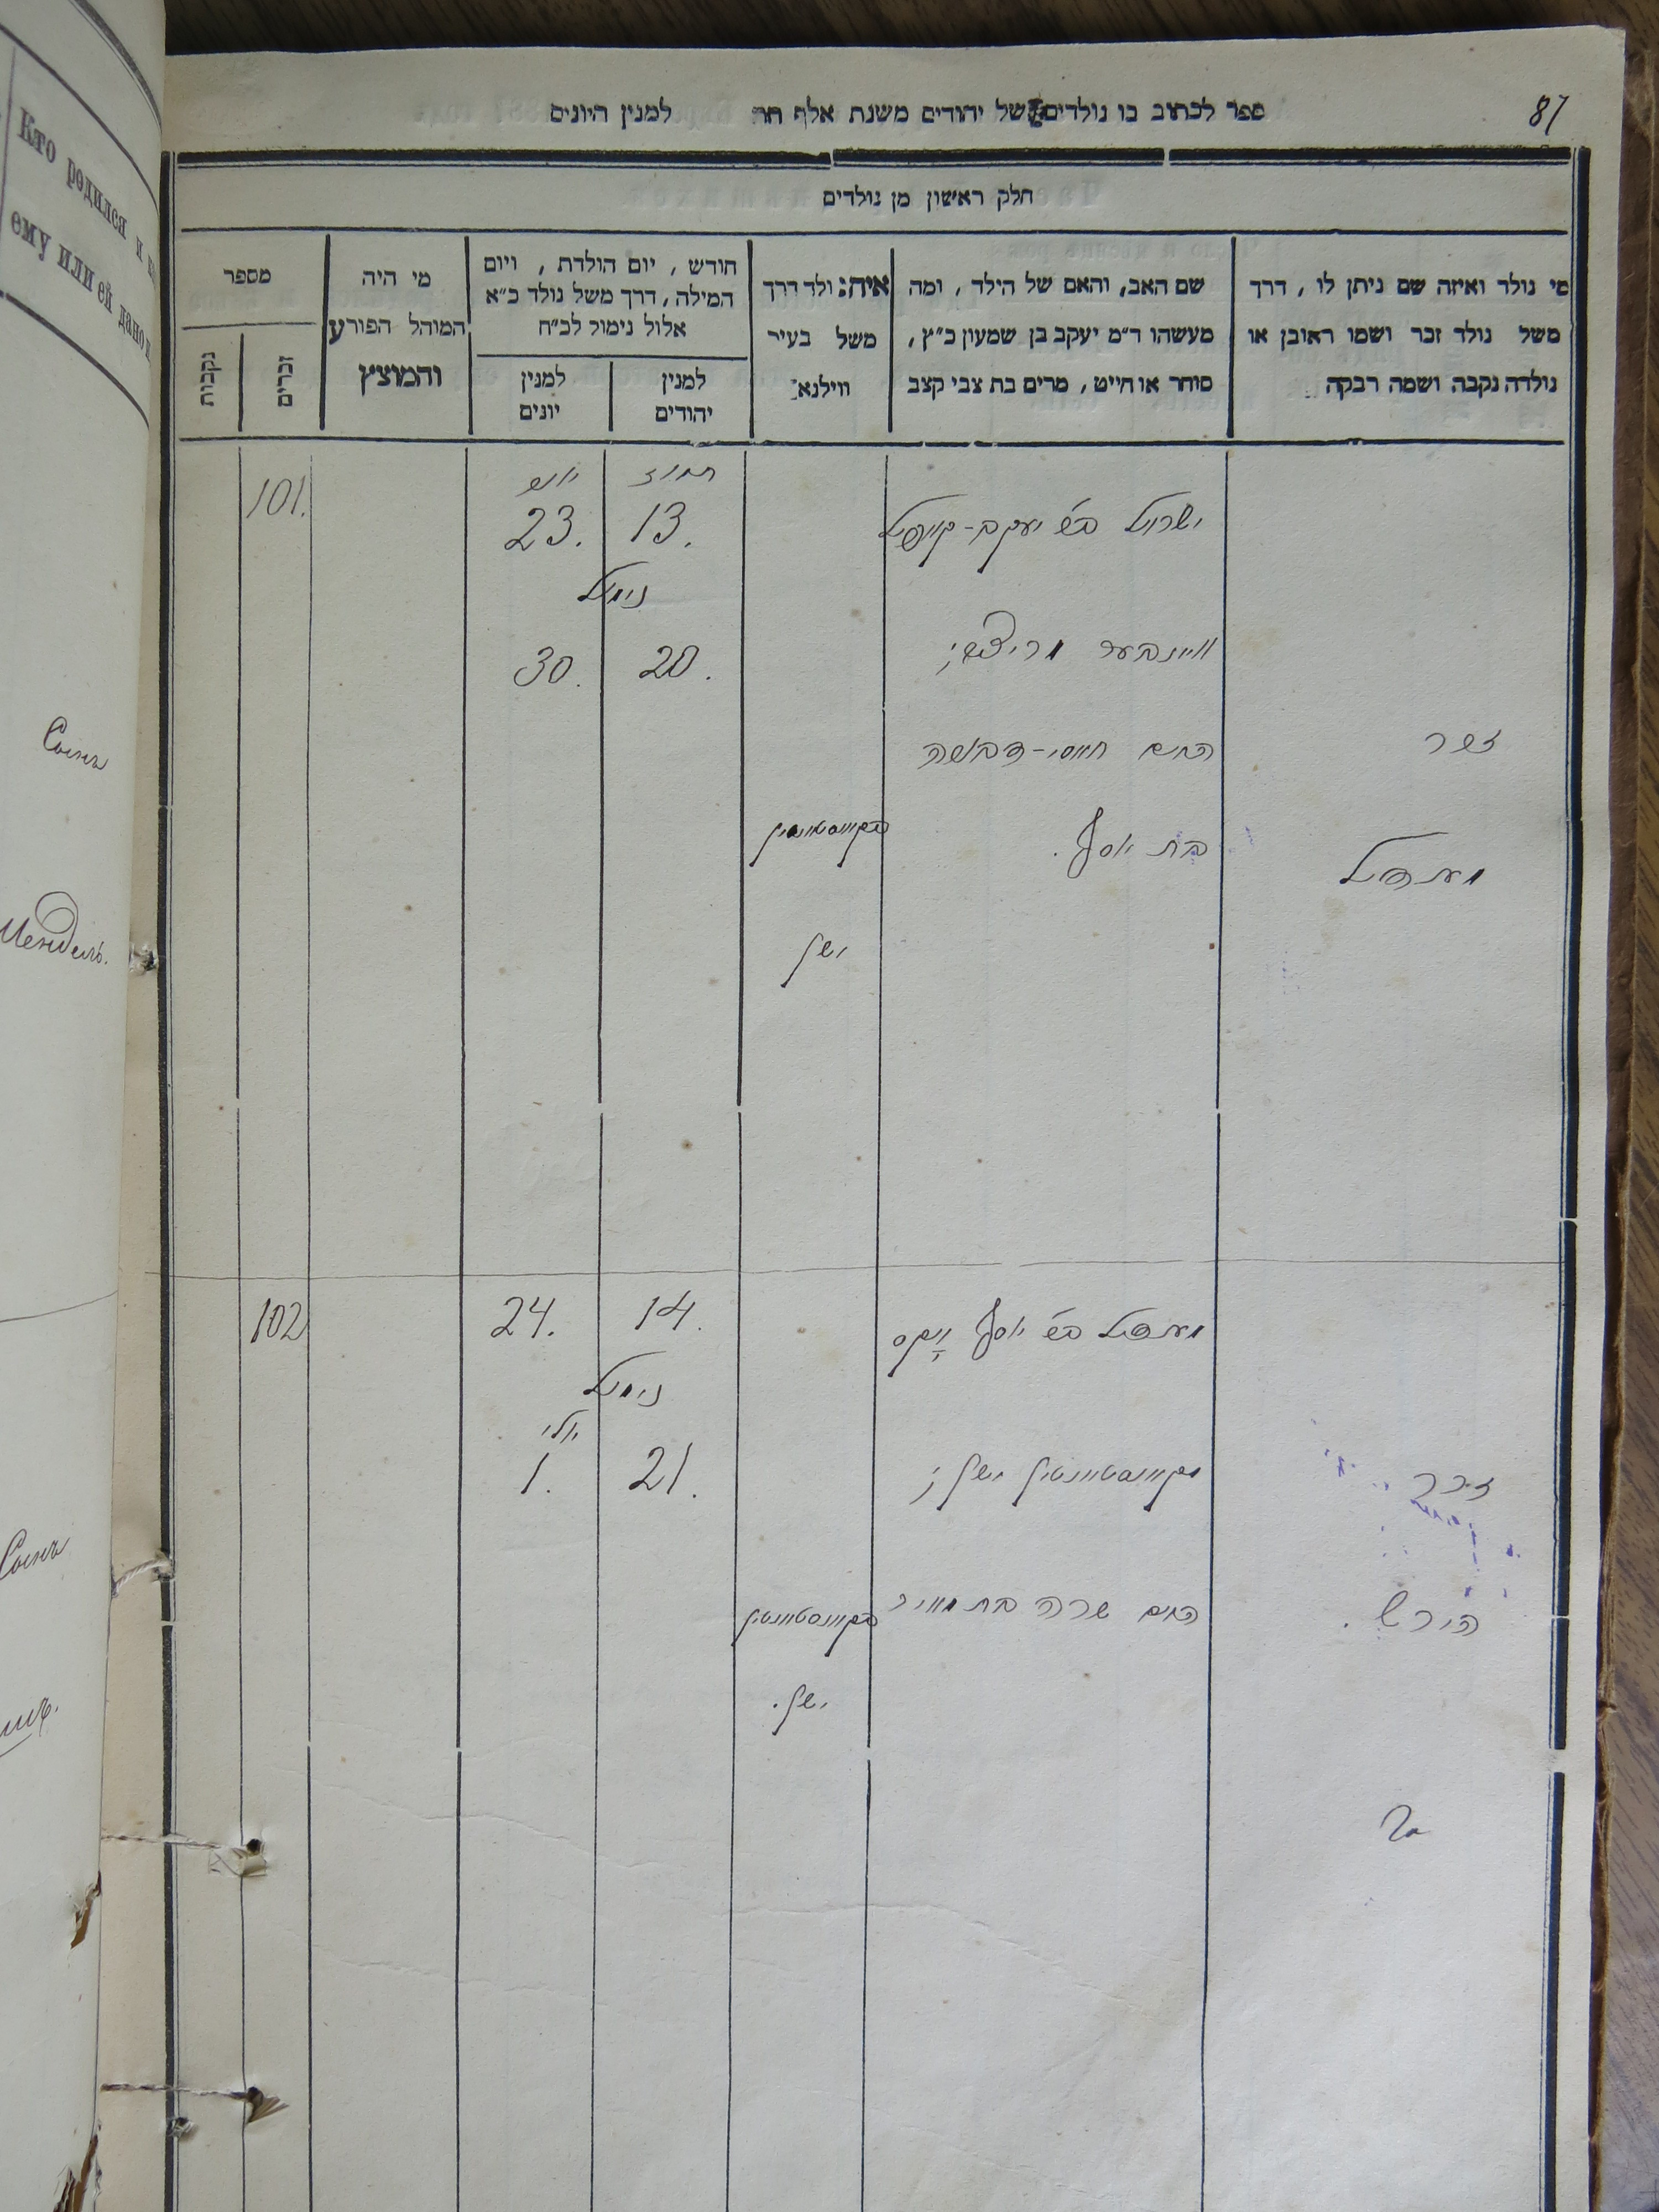 87
ספר לכתוב בו נולדים של יהודים משנת אלף תת למנין היונים
חלק ראשון מן נולדים
מי נולד ואיזה שם ניתן לו, דרך
משל נולד זכר ושמו ראובן או
נולדה נקבה ושמה רבקה
שם האב, והאם של הילד, ומה
מעשהו ד״מ יעקב בן שמעון כ״ץ,
סוחר או חייט, מרים בת צבי קצב
איה נולד דרך
משל בעיר
ווילנא
חודש, יום הולדת, ויום
המילה, דרך משל נולד כ״א
אלול נימול לכ״ח
למנין
יהודים
למנין
יונים
מי היה
המוהל הפורע
והמוצץ
מספר
זכרים
נקבות
זכר
מענדיל
ישראל ב״ש יעקב-קאפיל
האם חאסי-דבאשה
בת יוסף.
ישן
תמוז
13.
יוני
23.
נימול
20.
30.
101.
זכר
הירש.
מענדיל ב״ש יוסף
ישן;
האם שרה בת מאיר
ישן.
14.
24.
נימול
יולי
21.
1.
102
Кто родился и
ему или ей
Сынъ
Мендель.
Сынъ